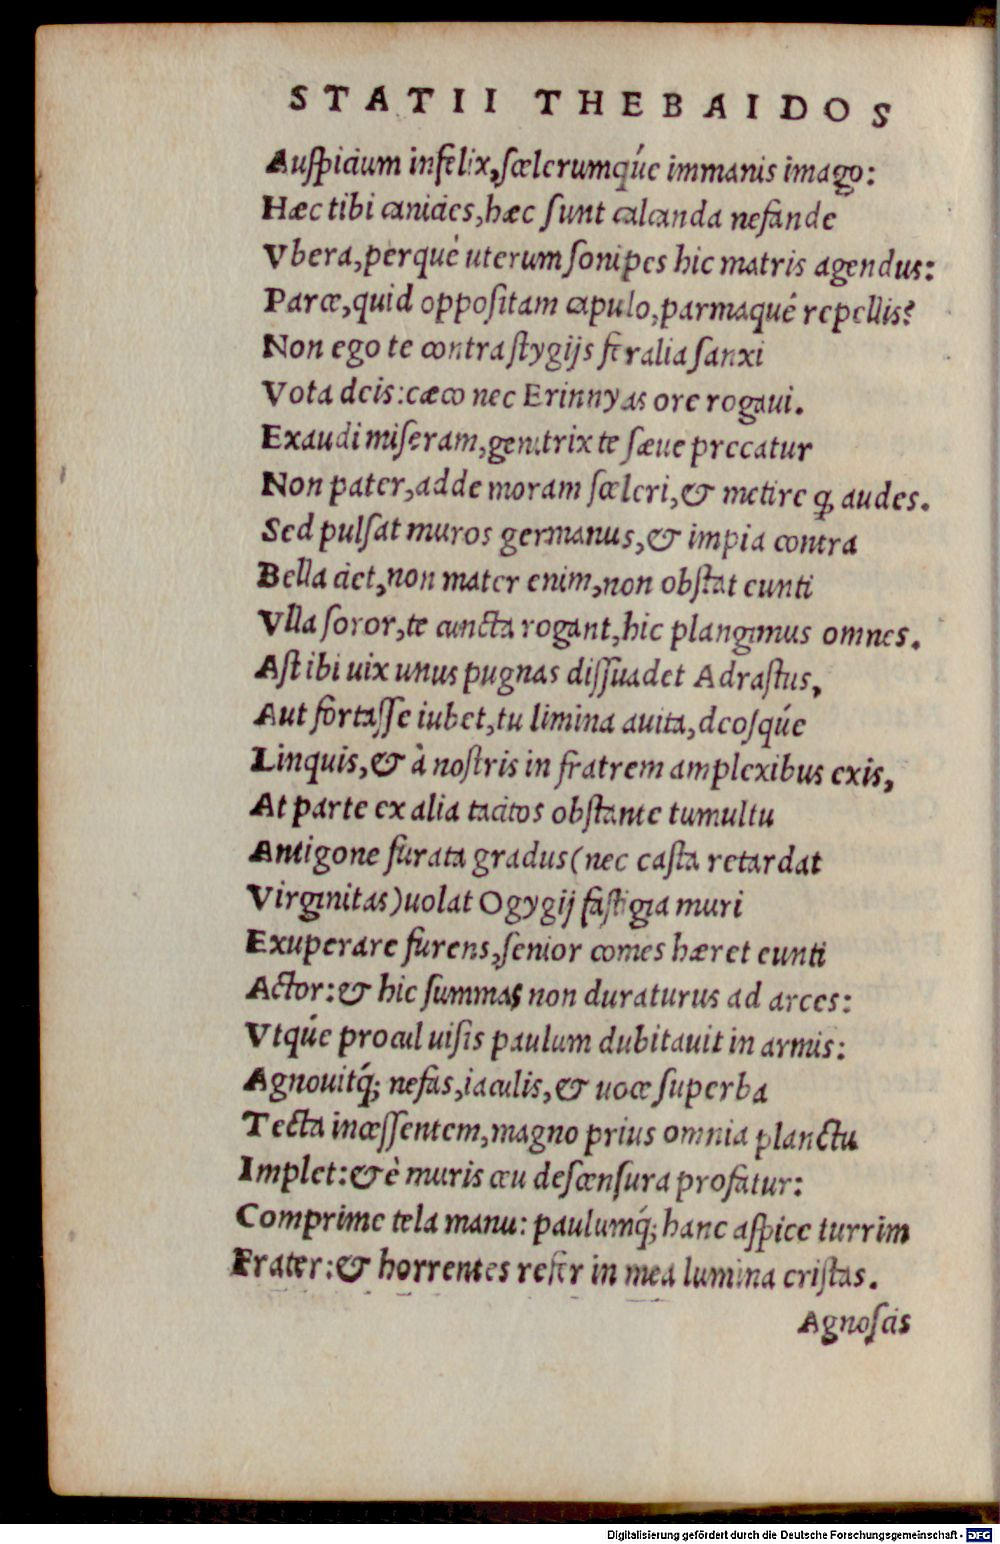 STATII THEBAIDOS
Auſpicium infelix, ſcelerumq́ue immanis imago:
Hæc tibi canicies, hæc ſunt calcanda nefande
Vbera, perquè uterum ſonipes hic matris agendus:
Parce, quid oppoſitam capulo, parmaqué repellis?
Non ego te contra ſtygijs feralia ſanxi
Vota deis: cæco nec Erinnyas ore rogaui.
Exaudi miſeram, genitrix te ſæue precatur
Non pater, adde moram ſceleri, & metire q̃ audes.
Sed pulſat muros germanus, & impia contra
Bella ciet, non mater enim, non obſtat eunti
Vlla ſoror, te cuncta rogant, hic plangimus omnes.
Aſt ibi uix unus pugnas diſſuadet Adraſtus,
Aut fortaſſe iubet, tu limina auita, deoſq́ue
Linquis, & à noſtris in fratrem amplexibus exis,
At parte ex alia tacitos obſtante tumultu
Antigone furata gradus (nec caſta retardat
Virginitas) uolat Ogygij faſtigia muri
Exuperare furens, ſenior comes hæret eunti
Actor: & hic ſummas non duraturus ad arces:
Vtq́ue procul uiſis paulum dubitauit in armis:
Agnouitq́; nefas, iaculis, & uoce ſuperba
Tecta inceſſentem, magno prius omnia planctu
Implet: & è muris ceu deſcenſura profatur:
Comprime tela manu: paulumq́; hanc aſpice turrim
Frater: & horrentes refer in mea lumina criſtas.
Agnoſcis
Digitalisierung gefördert durch die Deutsche Forschungsgemeinschaft - DFG